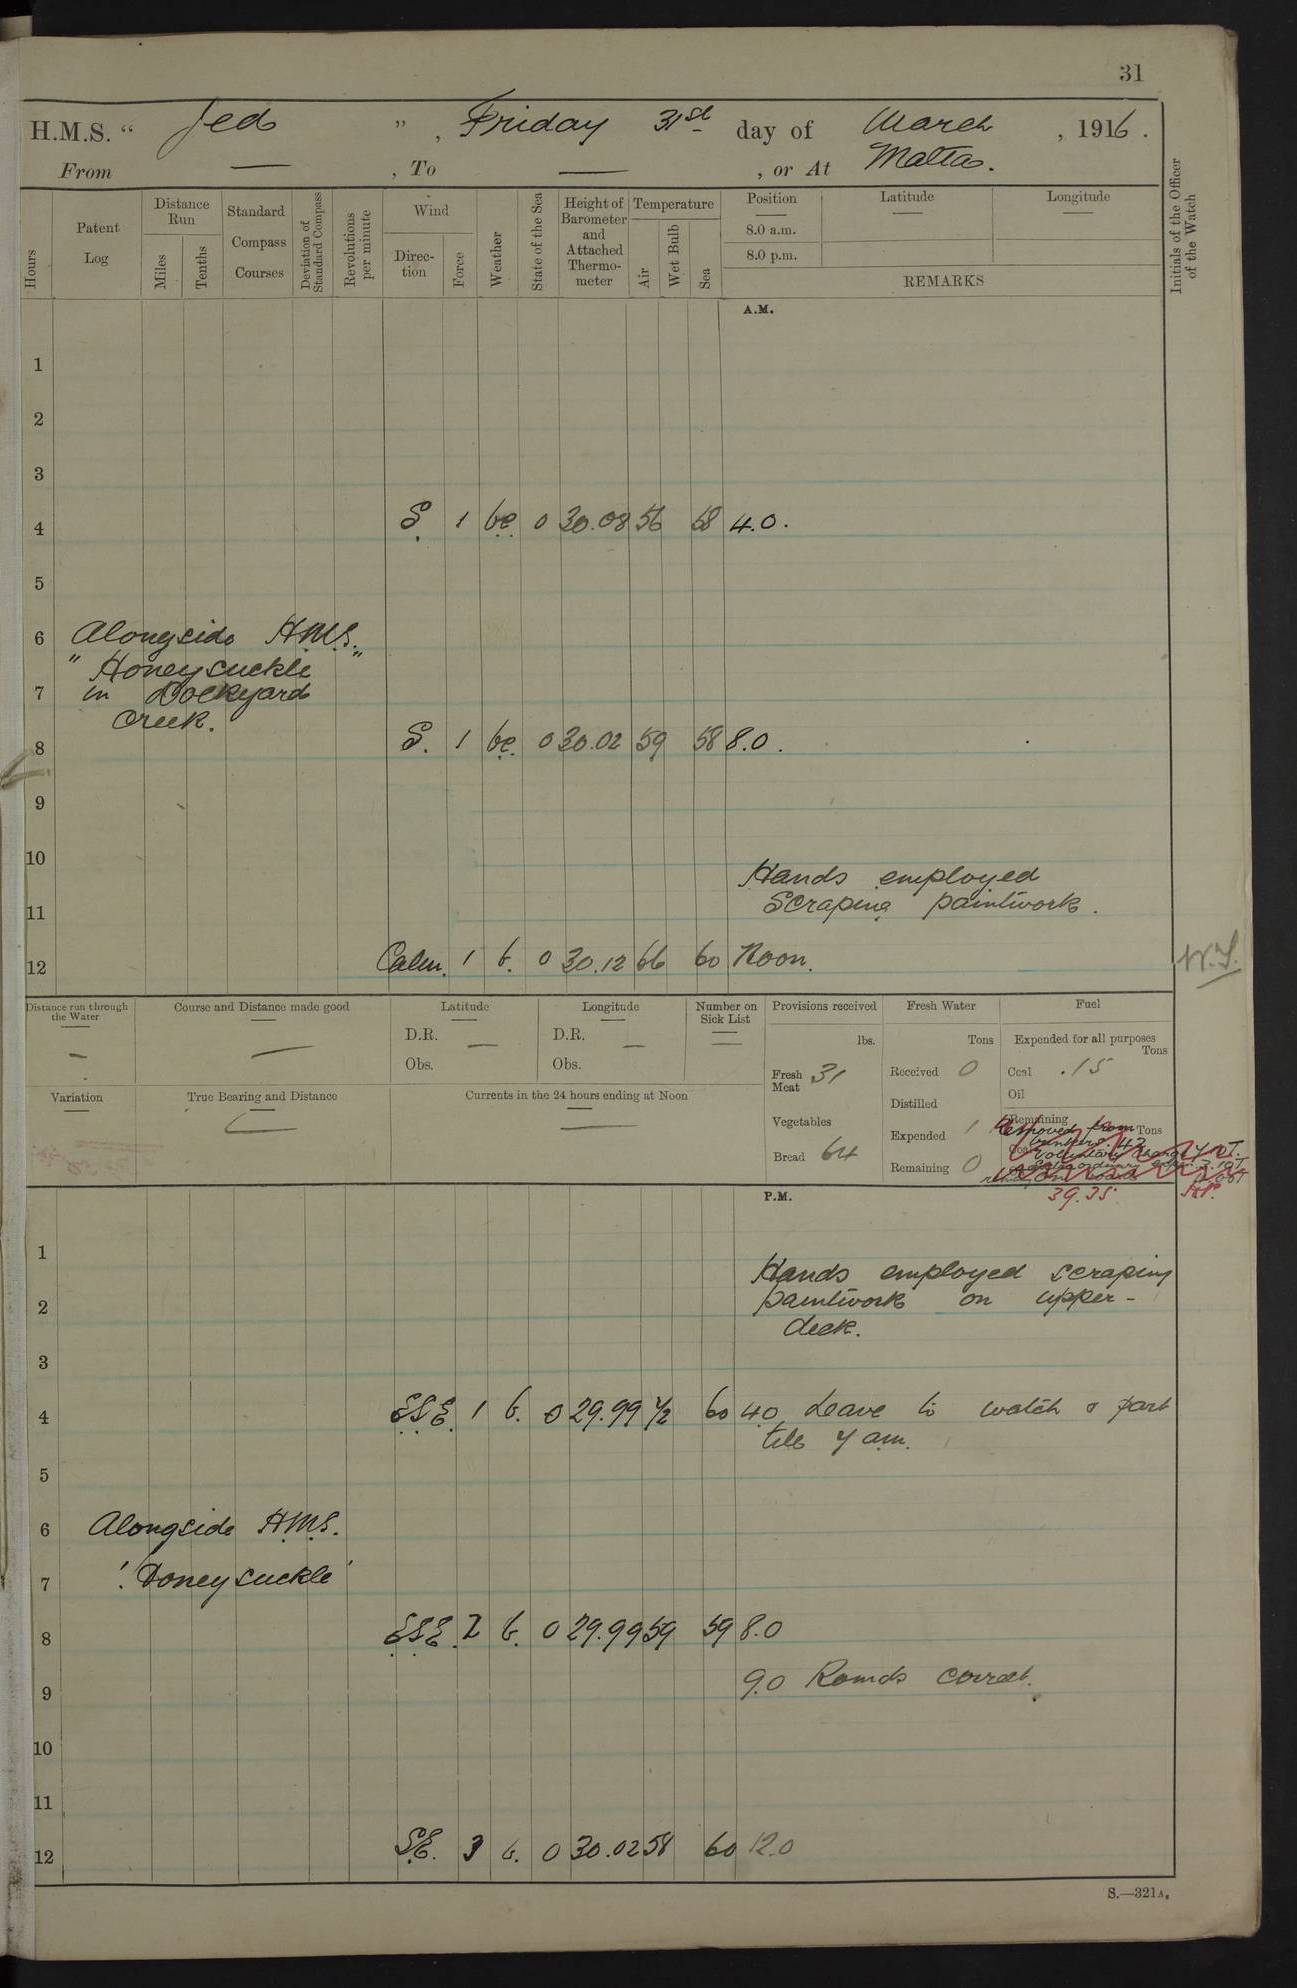 31
H.M.S. " Jed " , Friday 31st day of March , 1916.
From — , To — , or At Malta.
Hours
Patent Log
Distance Run
Miles
Tenths
Standard Compass Courses
Deviation of Standard Compass
Revolutions per minute
Wind
Direction
Force
Weather
State of the Sea
Height of Barometer and Attached Thermometer
Temperature
Air
Wet Bulb
Sea
Position
8.0 a.m.
8.0 p.m.
Latitude
Longitude
REMARKS
Initials of the Officer of the Watch
A.M.
1
2
3
4 S. 1 bc. 0 30.08 56 58 4.0.
5
6 Alongside H.M.S.
" Honeysuckle "
7 in Dockyard
Creek.
8 S. 1 bc. 0 30.02 59 58 8.0.
9
10 Hands employed
11 Scraping paintwork.
12 Calm. 1 b. 0 30.12 66 60 Noon. W.S.
Distance run through the Water
—
Course and Distance made good
—
Latitude
D.R. —
Obs.
Longitude
D.R. —
Obs.
Number on Sick List
—
Provisions received
lbs.
Fresh Meat 31
Vegetables
Bread 64
Fresh Water
Tons
Received 0
Distilled
Expended 1
Remaining 0
Fuel
Expended for all purposes
Tons
Coal .15
Oil
Remaining
Tons
Removed from
bunkers. 42
39.35
Variation
True Bearing and Distance
Currents in the 24 hours ending at Noon
P.M.
1 Hands employed scraping
2 paintwork on upper-
deck.
3
4 ESE. 1 b. 0 29.99 60 4.0 Leave to watch & part
till 7 am.
5
6 Alongside H.M.S.
7 'Honeysuckle'
8 ESE. 2 b. 0 29.99 59 59 8.0
9 9.0 Rounds correct.
10
11
12 SE. 3 b. 0 30.02 58 60 12.0
S.—321A.